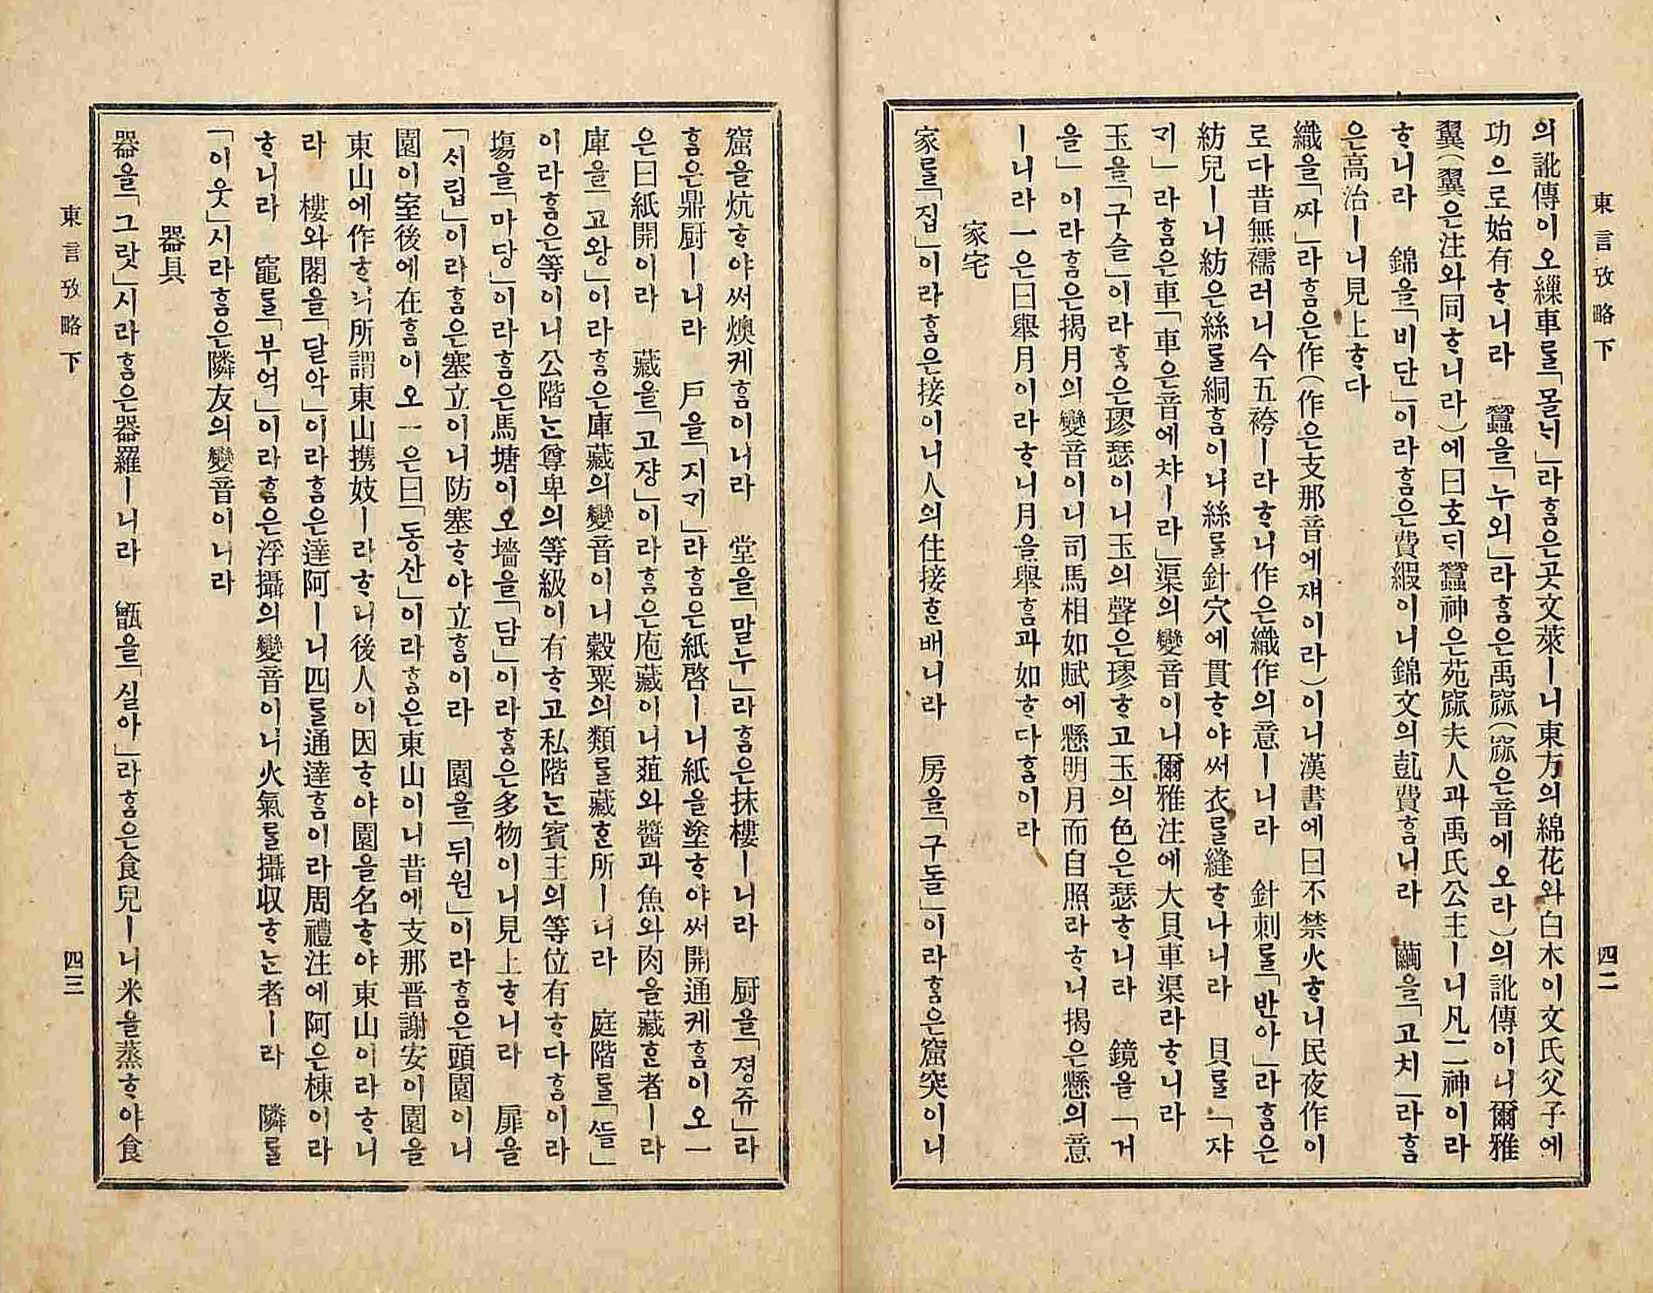 東言攷略下
四二
의訛傳이오繅車를「몰ᄂᆡ」라ᄒᆞᆷ은곳文萊ㅣ니東方의綿花와白木이文氏父子에
功으로始有ᄒᆞ니라 蠶을「누외」라ᄒᆞᆷ은禹寃(寃은音에오라)의訛傳이니爾雅
翼(翼은注와同ᄒᆞ니라)에曰호ᄃᆡ蠶神은苑窳夫人과禹氏公主ㅣ니凡二神이라
ᄒᆞ니라 錦을「비단」이라ᄒᆞᆷ은費緞이니錦文의虛費ᄒᆞᆷ니라 繭을「고치」라ᄒᆞᆷ
은高治ㅣ니見上ᄒᆞ다
織을「짜」라ᄒᆞᆷ은作(作은支那音에쟤이라)이니漢書에曰不禁火ᄒᆞ니民夜作이
로다昔無襦러니今五袴ㅣ라ᄒᆞ니作은織作의意ㅣ니라 針刺를「반아」라ᄒᆞᆷ은
紡兒ㅣ니紡은絲를綱ᄒᆞᆷ이니絲를針穴에貫ᄒᆞ야써衣를縫ᄒᆞ나니라 貝를「쟈
ᄀᆡ」라ᄒᆞᆷ은車「車은音에챠ㅣ라」渠의變音이니爾雅注에大貝車渠라ᄒᆞ니라
玉을「구슬」이라ᄒᆞᆷ은璆瑟이니玉의聲은璆ᄒᆞ고玉의色은瑟ᄒᆞ니라 鏡을「거
을」이라ᄒᆞᆷ은揭月의變音이니司馬相如賦에懸明月而自照라ᄒᆞ니揭은懸의意
ㅣ니라一은曰舉月이라ᄒᆞ니月을舉ᄒᆞᆷ과如ᄒᆞ다ᄒᆞᆷ이라
家宅
家를「집」이라ᄒᆞᆷ은接이니人의住接ᄒᆞᆫ배니라 房을「구돌」이라ᄒᆞᆷ은窟突이니
窟을炕ᄒᆞ야써燠케ᄒᆞᆷ이니라 堂을「말누」라ᄒᆞᆷ은抹樓ㅣ니라 厨을「졍쥬」라
ᄒᆞᆷ은鼎厨ㅣ니라 戶을「지ᄀᆡ」라ᄒᆞᆷ은紙啓ㅣ니紙을塗ᄒᆞ야써開通케ᄒᆞᆷ이오一
은曰紙開이라 藏을「고쟝」이라ᄒᆞᆷ은庖藏이니葅와醬과魚와肉을藏ᄒᆞᆫ者ㅣ라
庫을「고왕」이라ᄒᆞᆷ은庫藏의變音이니穀粟의類를藏ᄒᆞᆫ所ㅣ니라 庭階를「ᄯᅳᆯ」
이라ᄒᆞᆷ은等이니公階ᄂᆞᆫ尊卑의等級이有ᄒᆞ고私階ᄂᆞᆫ賓主의等位有ᄒᆞ다ᄒᆞᆷ이라
塲을「마당」이라ᄒᆞᆷ은馬塘이오墻을「담」이라ᄒᆞᆷ은多物이니見上ᄒᆞ니라 扉을
「ᄉᆡ립」이라ᄒᆞᆷ은塞立이니防塞ᄒᆞ야立ᄒᆞᆷ이라 園을「뒤원」이라ᄒᆞᆷ은頭園이니
園이室後에在ᄒᆞᆷ이오一은曰「동산」이라ᄒᆞᆷ은東山이니昔에支那晋謝安이園을
東山에作ᄒᆞ니所謂東山携妓ㅣ라ᄒᆞ니後人이因ᄒᆞ야園을名ᄒᆞ야東山이라ᄒᆞ니
라 樓와閣을「달악」이라ᄒᆞᆷ은達阿ㅣ니四를通達ᄒᆞᆷ이라周禮注에阿은棟이라
ᄒᆞ니라 竈를「부억」이라ᄒᆞᆷ은浮攝의變音이니火氣를攝収ᄒᆞᄂᆞᆫ者ㅣ라 隣를
「이웃」시라ᄒᆞᆷ은隣友의變音이니라
器具
器을「그랏」시라ᄒᆞᆷ은器羅ㅣ니라 甑을「실아」라ᄒᆞᆷ은食兒ㅣ니米을蒸ᄒᆞ야食
東言攷略下
四三